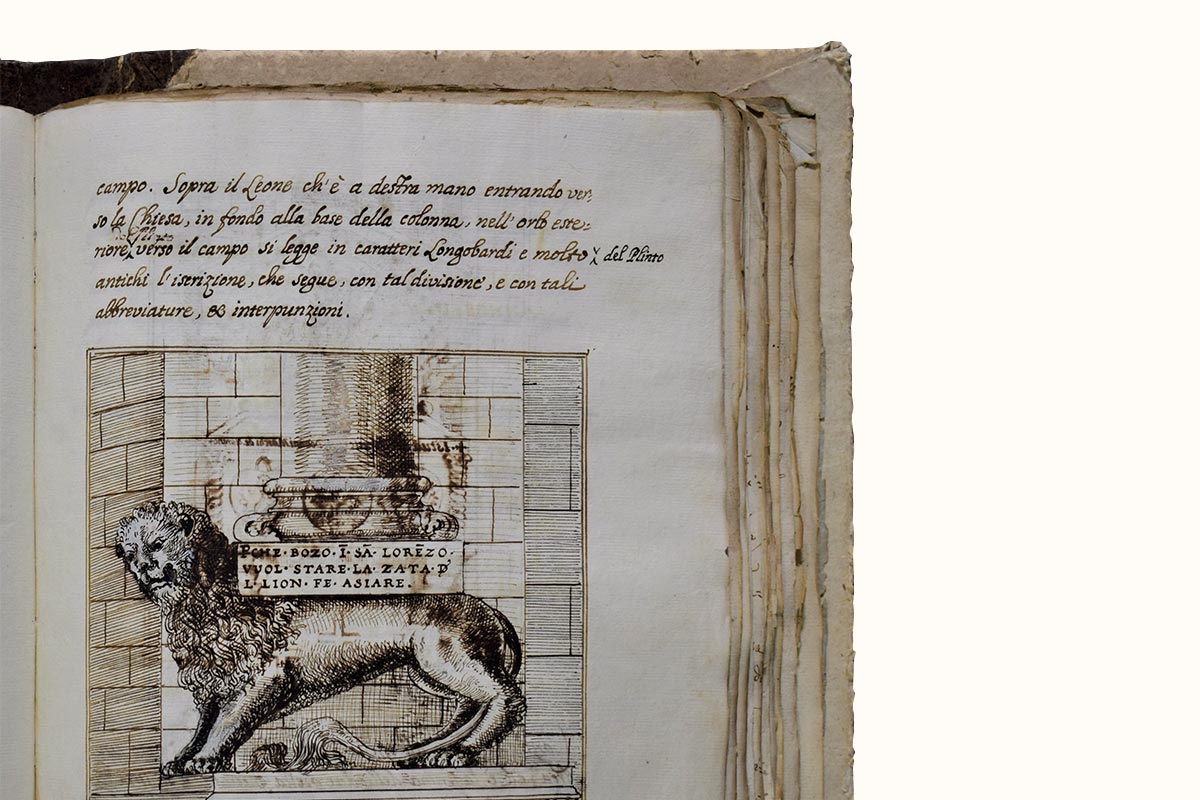 campo. Sopra il Leone ch'è a destra mano entrando ver,
so la Chiesa, in fondo alla base della colonna, nell' orlo este=
riore verso il campo si legge in caratteri Longobardi e molto del Plinto
antichi l'iscrizione, che segue, con tal divisione, e con tali
abbreviature, & interpunzioni.
PCHE · BOZO · Ī · SĀ · LORĒZO ·
VVOL · STARE · LA · ZATA · D'
L · LION · FE · ASIARE .